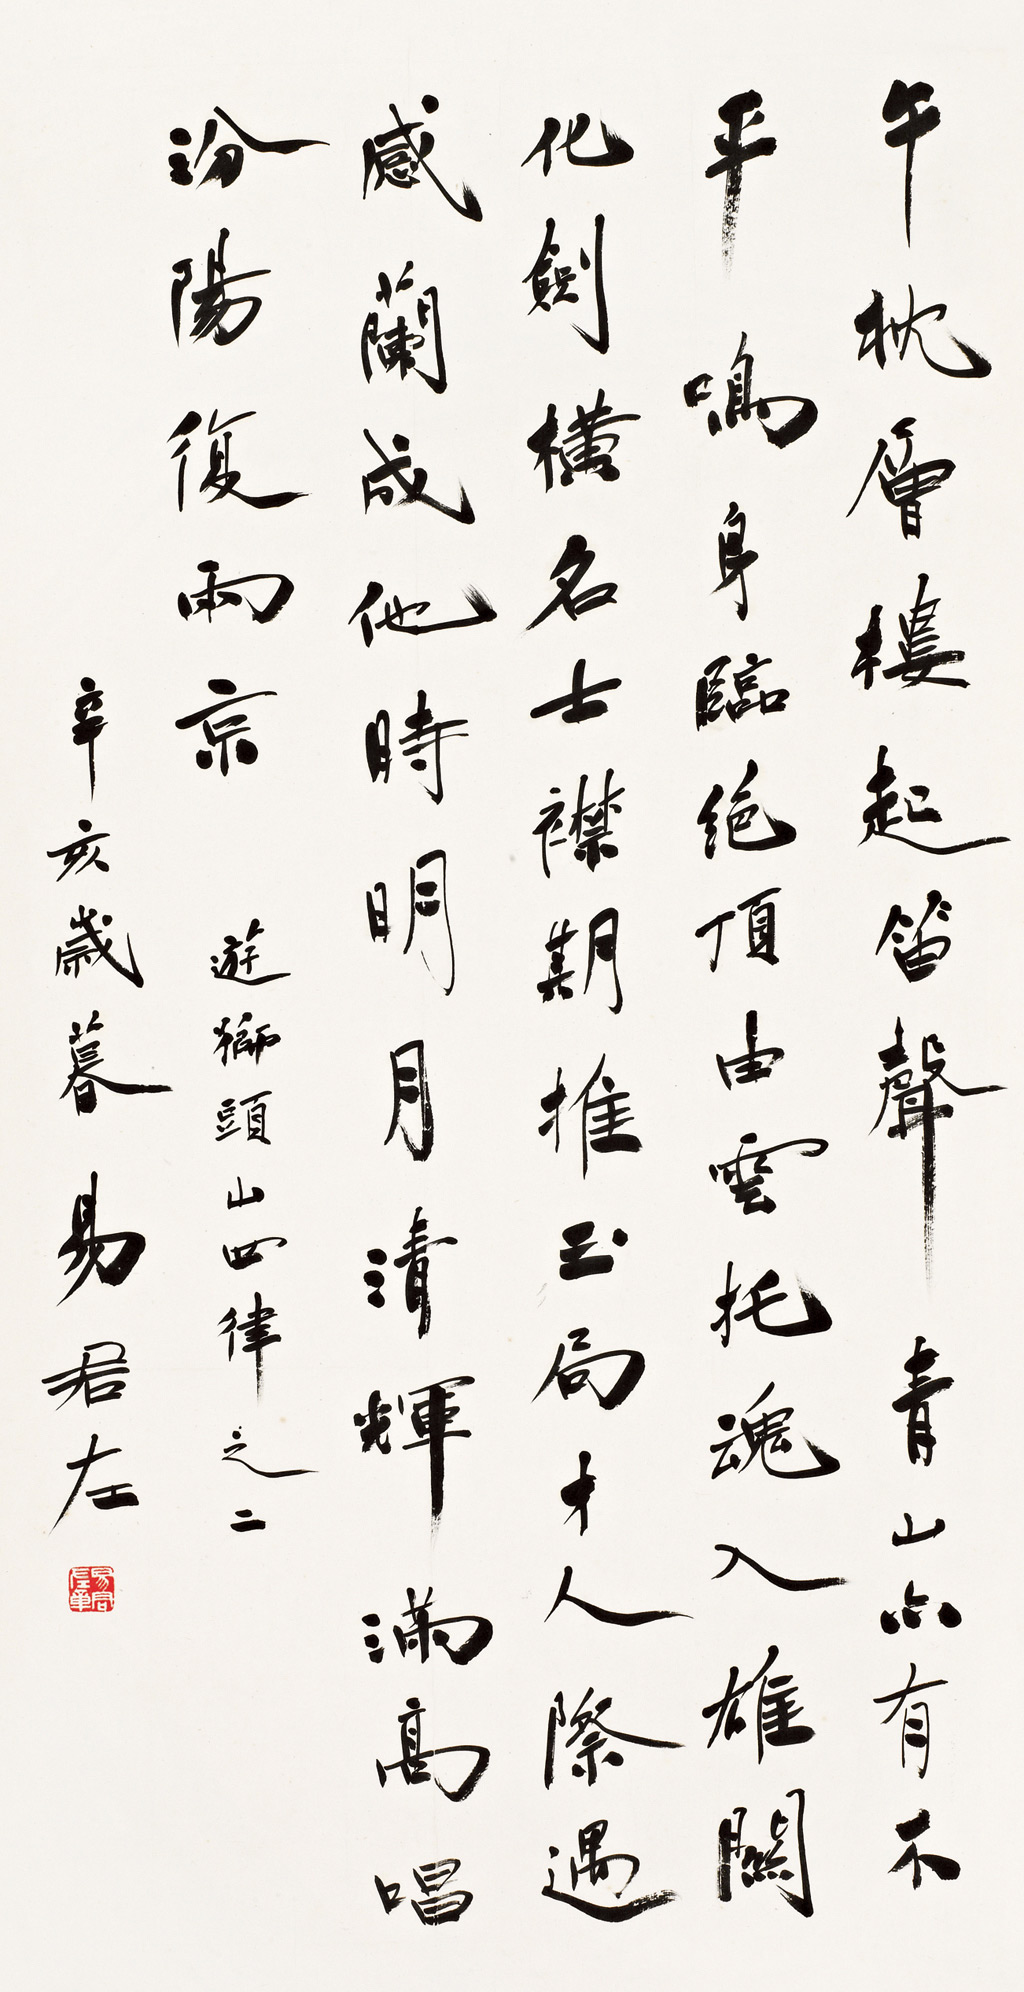 午枕層樓起笛聲青山亦有不
平鳴身臨絕頂由雲托魂入雄關
化劍橫名士襟期推玉局才人際遇
感蘭成他時明月清輝滿高唱
汾陽復兩京
遊獅頭山四律之二
辛亥歲暮易君左
易君左章